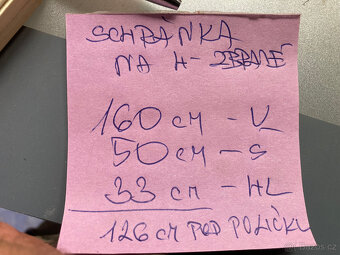 SCHRÁŇKA
NA H- ZBRANĚ
160 cm - V
50 cm - Š
33 cm - HL
126 cm POD POLIČKU